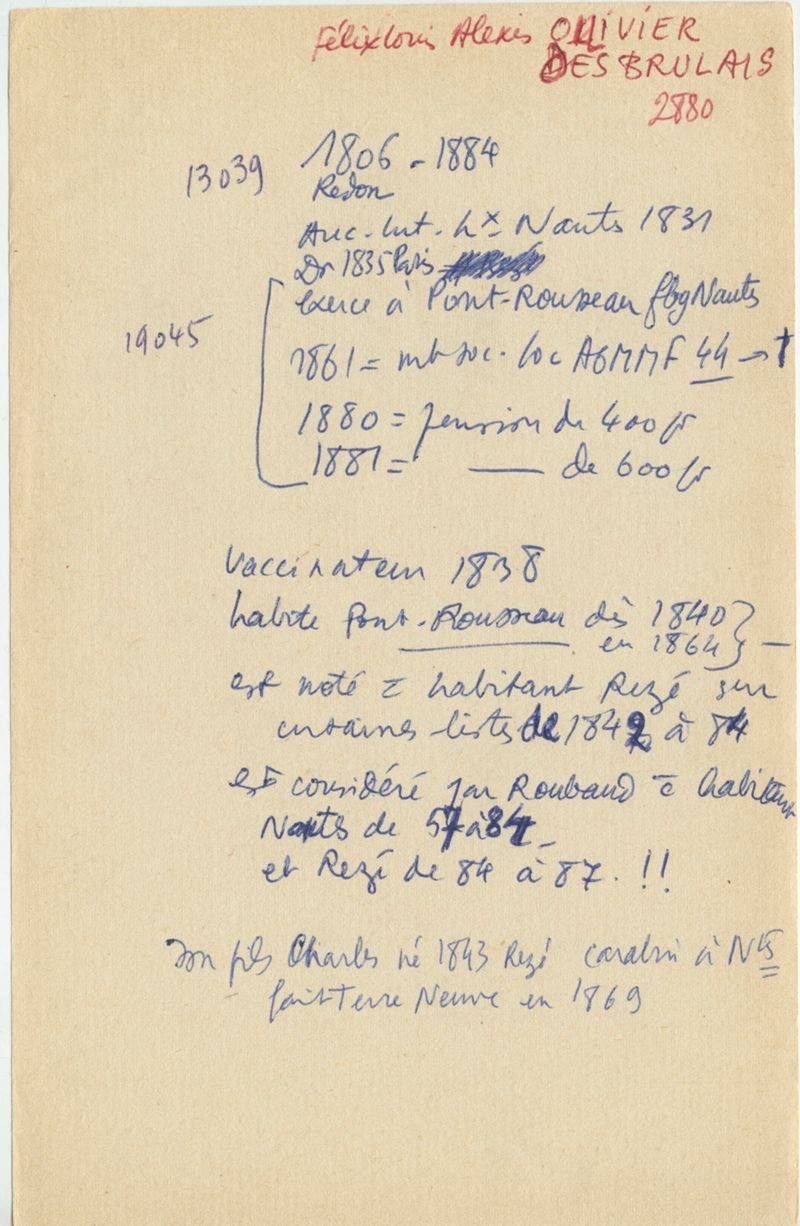 Félix Louis Alexis OLLIVIER
DESBRULAIS
2880
13039 1806 - 1884
Redon
Anc. Int. hx Nants 1831
Dr 1835 Paris
19045
exerce à Pont-Rousseau fbg Nants
1861 = mb soc. loc AGMMF 44 → †
1880 = pension de 400 fr
1881 = —— de 600 fr
Vaccinateur 1838
habite Pont-Rousseau dès 1840
en 1864 } —
est noté = habitant Rezé sur
certaines listes de 1842 à 84
est considéré par Roubaud = habitant
Nants de 57 à 84
et Rezé de 84 à 87. !!
son fils Charles né 1843 Rezé carabin à Nts
fait Terre Neuve en 1869